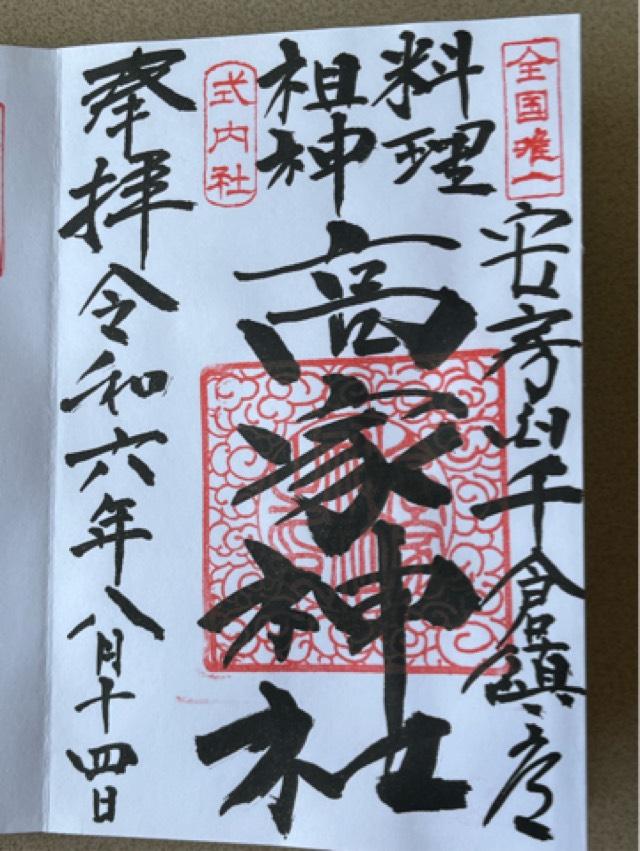 全国唯一
安房国千倉鎮座
料理
祖神
高家神社
式内社
奉拝
令和六年八月十四日